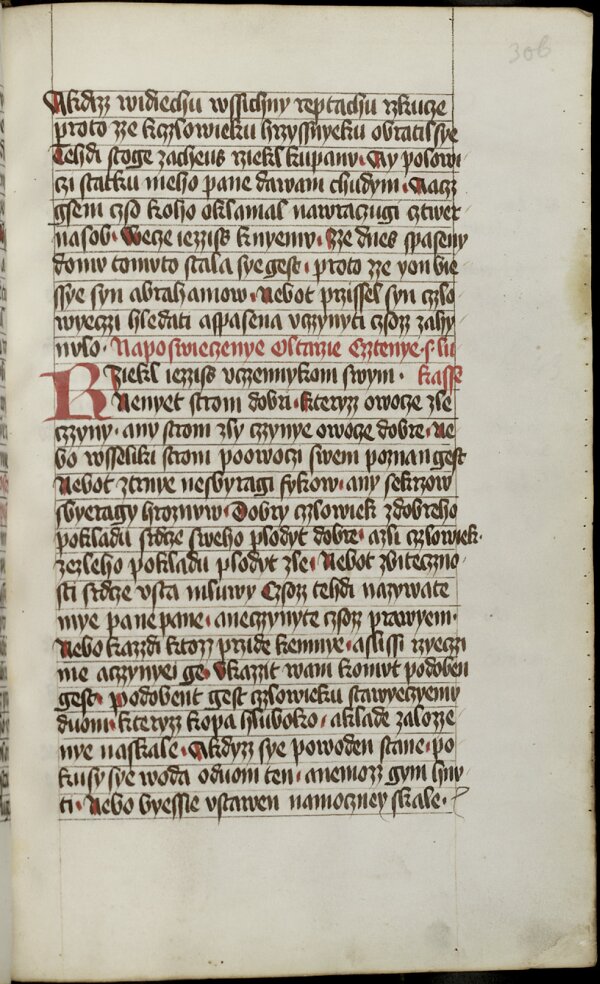 306
Akdyz widiechu wssichny reptachu rzkucze
proto ze kczlowieku hrzyssnyeku obratil sye
Tehdi stoge zacheus rziekl kupanu· Ay polowi
czi statku meho pane dawam chudym· Aacz
gsem czso koho oklamal nawraczugi cztwer
nasob· wecze iezziss knyemv· Ze dnes spaseny
domv tomvto stala sye gest· proto ze yon bie
ssye syn abrahamow· Nebot przissel syn czlo
wyeczi hledati aspasena vczynyti czsoz zahy
nulo· Naposwieczenye Oltarzie Cztenye·s·lu
Rziekl iezziss vczennykom swym· kasse
Nenyet strom dobri· kteryz owocze zle
czzyny· any strom zly czynye owocze dobre· Ne
bo wsseliki strom poowoczi swem poznan gest
Nebot ztrnye nesbyragi fykow· any sekrzow
sbyeragy hroznyw· Dobry czlowiek zdobreho
pokladu srdcze sweho plodyt dobre· azli czlowiek·
zezleho pokladu plodyt zle· Nebot zbiteczno·
sti srdcze vsta mluwy Czsoz tehdi nazywate
mye pane pane· aneczynyte czsoz prawyem·
Nebo kazzdi ktoz przide kemnye· aslissi rzyeczi
me aczynyei ge· Vkazzit wam komvt podoben
gest· podobent gest czlowieku stawyeczyemv
duom· kteryz kopa hluboko· aklade zaloze
nye naskale· Akdyz sye powoden stane· po
kusy sye woda oduom ten· anemoz gym hnv
ti· Nebo byessie vstawen namoczney skale·